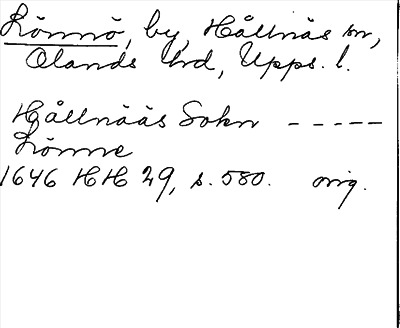 Lönnö, by, Hållnäs sn,
Olands hrd, Upps. l.
Hållnääs Sokn -----
Lönne
1646 HH 29, s. 580. orig.